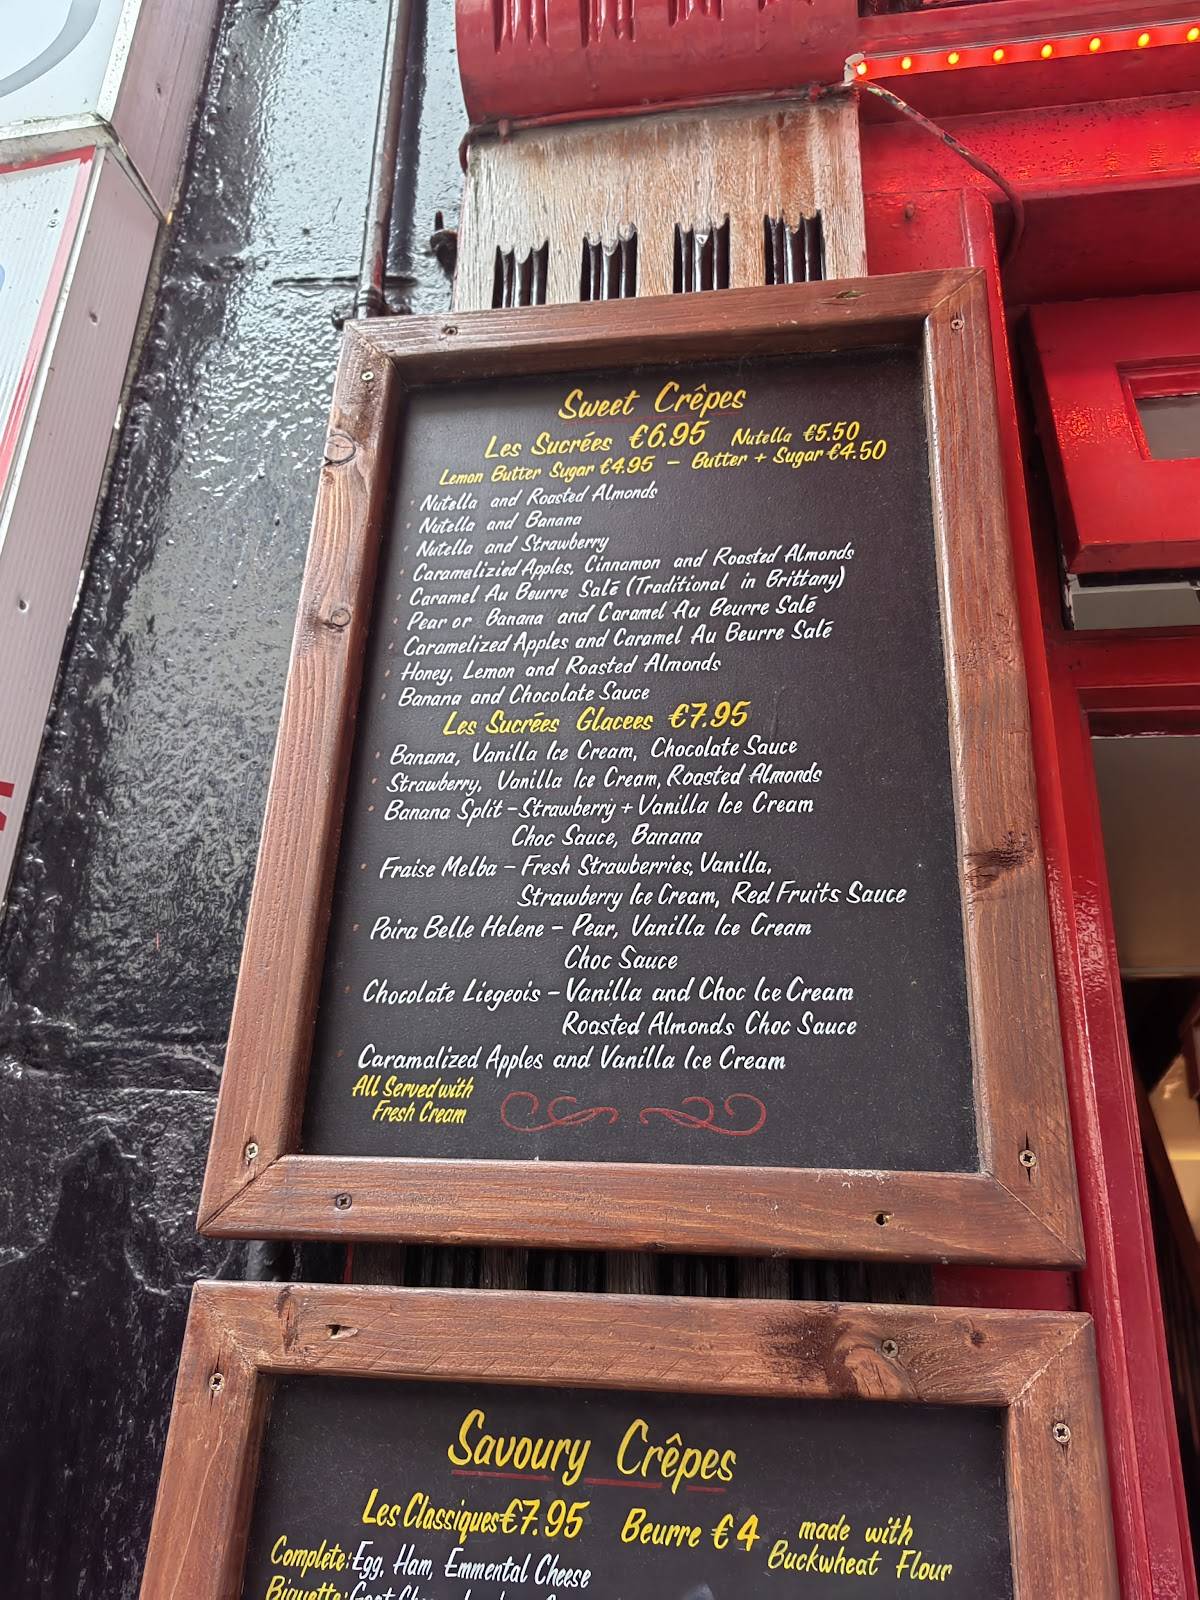 Sweet Crêpes
Les Sucrées €6.95 Nutella €5.50
Lemon Butter Sugar €4.95 - Butter + Sugar €4.50
Nutella and Roasted Almonds
Nutella and Banana
Nutella and Strawberry
Caramalizied Apples, Cinnamon and Roasted Almonds
Caramel Au Beurre Salé (Traditional in Brittany)
Pear or Banana and Caramel Au Beurre Salé
Caramelized Apples and Caramel Au Beurre Salé
Honey, Lemon and Roasted Almonds
Banana and Chocolate Sauce
Les Sucrées Glacees €7.95
Banana, Vanilla Ice Cream, Chocolate Sauce
Strawberry, Vanilla Ice Cream, Roasted Almonds
Banana Split - Strawberry + Vanilla Ice Cream
Choc Sauce, Banana
Fraise Melba - Fresh Strawberries, Vanilla,
Strawberry Ice Cream, Red Fruits Sauce
Poira Belle Helene - Pear, Vanilla Ice Cream
Choc Sauce
Chocolate Liegeois - Vanilla and Choc Ice Cream
Roasted Almonds Choc Sauce
Caramalized Apples and Vanilla Ice Cream
All Served with
Fresh Cream
Savoury Crêpes
Les Classiques €7.95 Beurre €4 made with
Buckwheat Flour
Complète: Egg, Ham, Emmental Cheese
Biquette: Goat